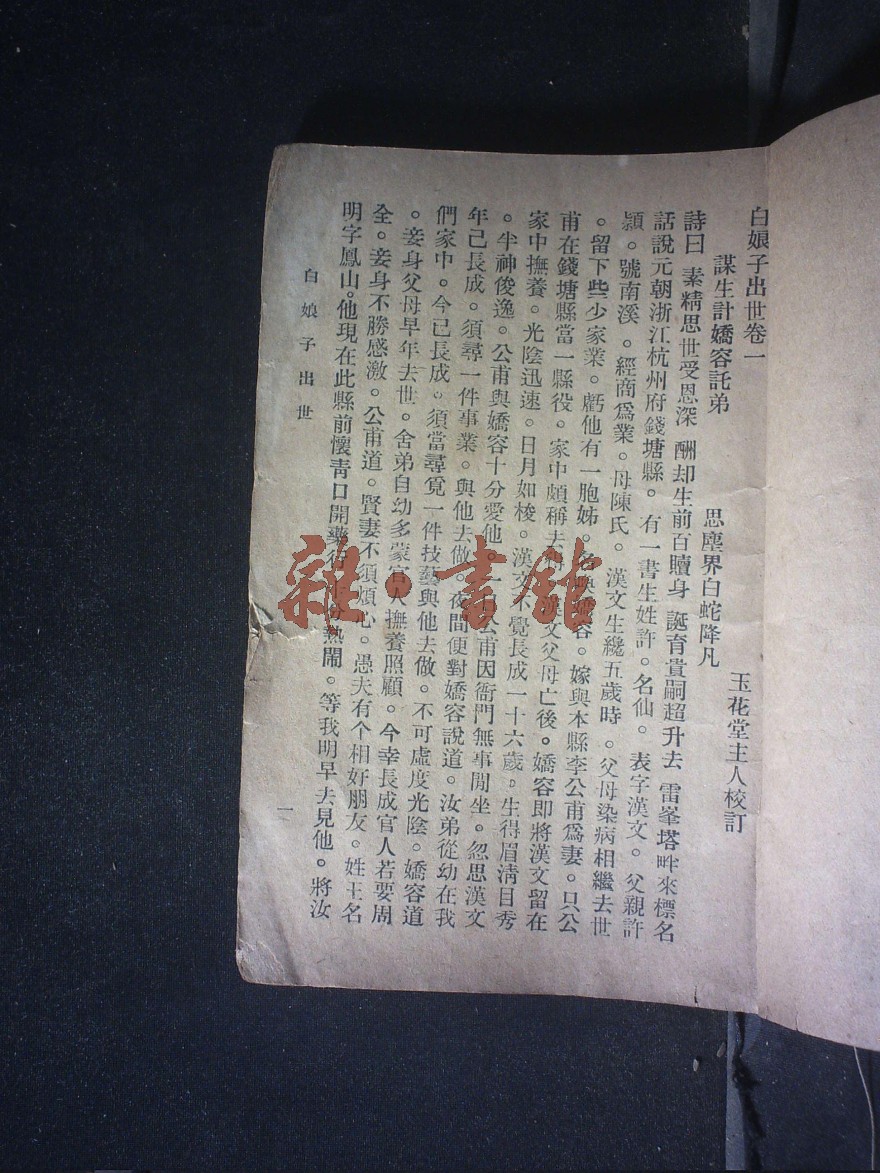 白娘子出世卷一
玉花堂主人校訂
謀生計嬌容託弟　思塵界白蛇降凡
詩曰　素精思世受恩深　酬却生前百贖身　誕育貴嗣超升去　雷峯塔畔來標名
話說元朝浙江杭州府錢塘縣。有一書生姓許。名仙。表字漢文。父親許
潁。號南溪。經商爲業。母陳氏。漢文生纔五歲時。父母染病相繼去世
。留下些少家業。虧他有一胞姊。名喚嬌容。嫁與本縣李公甫爲妻。只公
甫在錢塘縣當一縣役。家中頗稱去得。漢文父母亡後。嬌容即將漢文留在
家中撫養。光陰迅速。日月如梭。漢文不覺長成一十六歲。生得眉清目秀
。丰神俊逸。公甫與嬌容十分愛他。一日公甫因衙門無事閒坐。忽思漢文
年已長成。須尋一件事業。與他去做。夜間便對嬌容說道。汝弟從幼在我
們家中。今已長成。須當尋覓一件技藝與他去做。不可虛度光陰。嬌容道
。妾身父母早年去世。舍弟自幼多蒙官人撫養照顧。今幸長成官人若要周
全。妾身不勝感激。公甫道。賢妻不須煩心。愚夫有个相好朋友。姓王名
明字鳳山。他現在此縣前懷靑口開藥行 熱鬧。等我明早去見他。將汝
白娘子出世
一
雜·書館